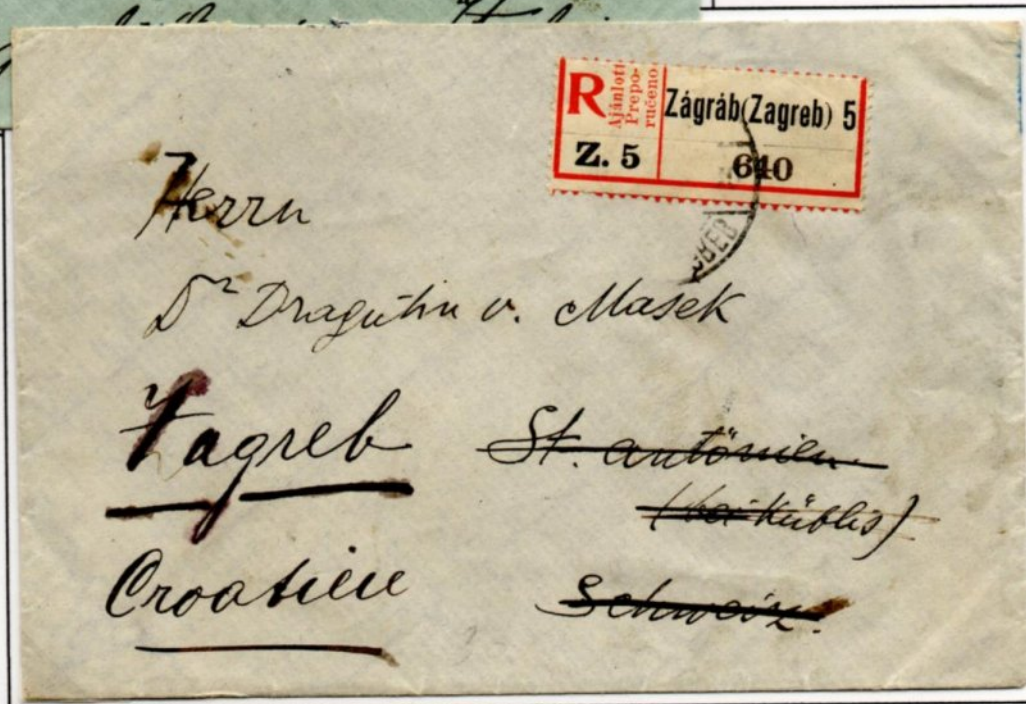 R
Ajánlott
Prepo-
ručeno
Zágráb(Zagreb) 5
Z. 5
640
Herrn
Dr Dragutin v. Masek
Zagreb
St. Antönien
(bei Küblis)
Croatien
Schweiz.